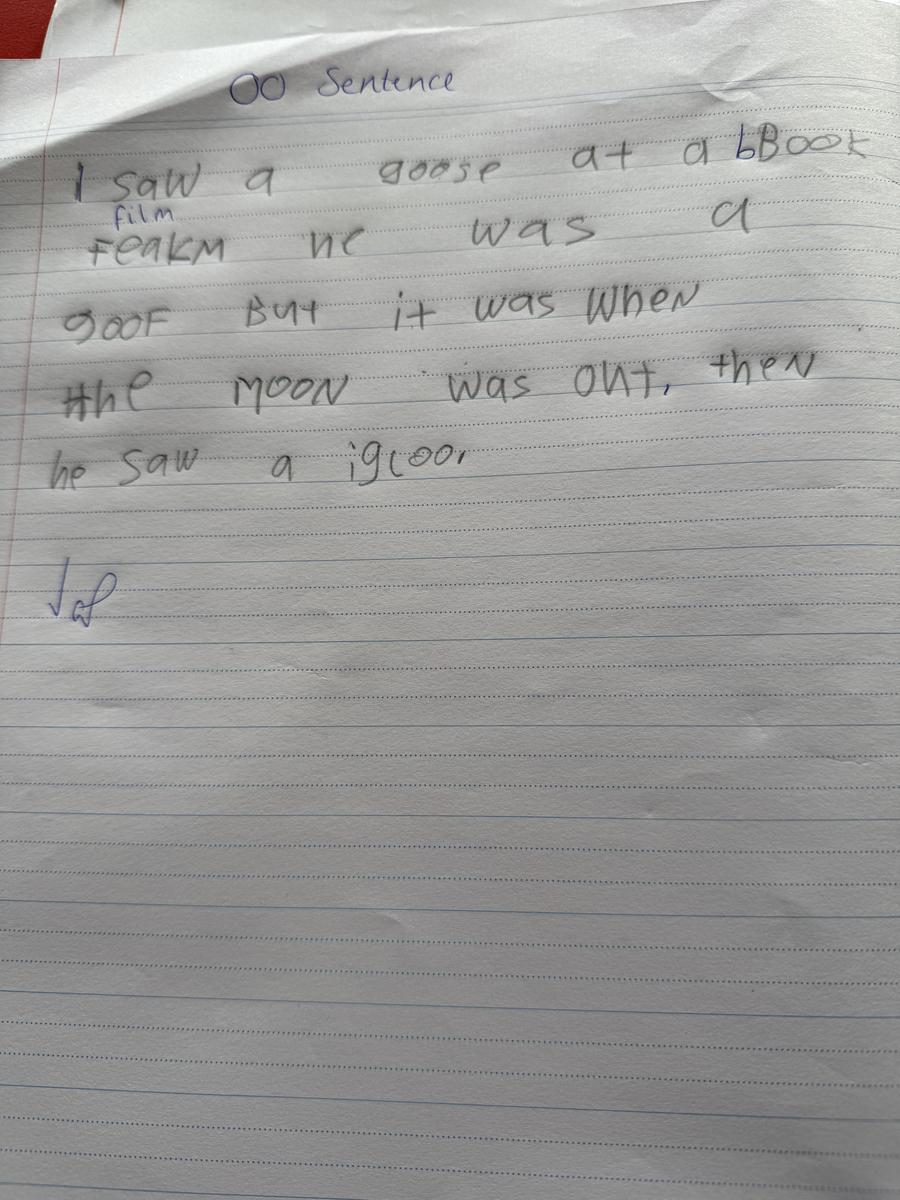 OO Sentence
I saw a goose at a bBook
film
FeakM he was a
gooF But it was When
the MOON was out, then
he saw a igloo.